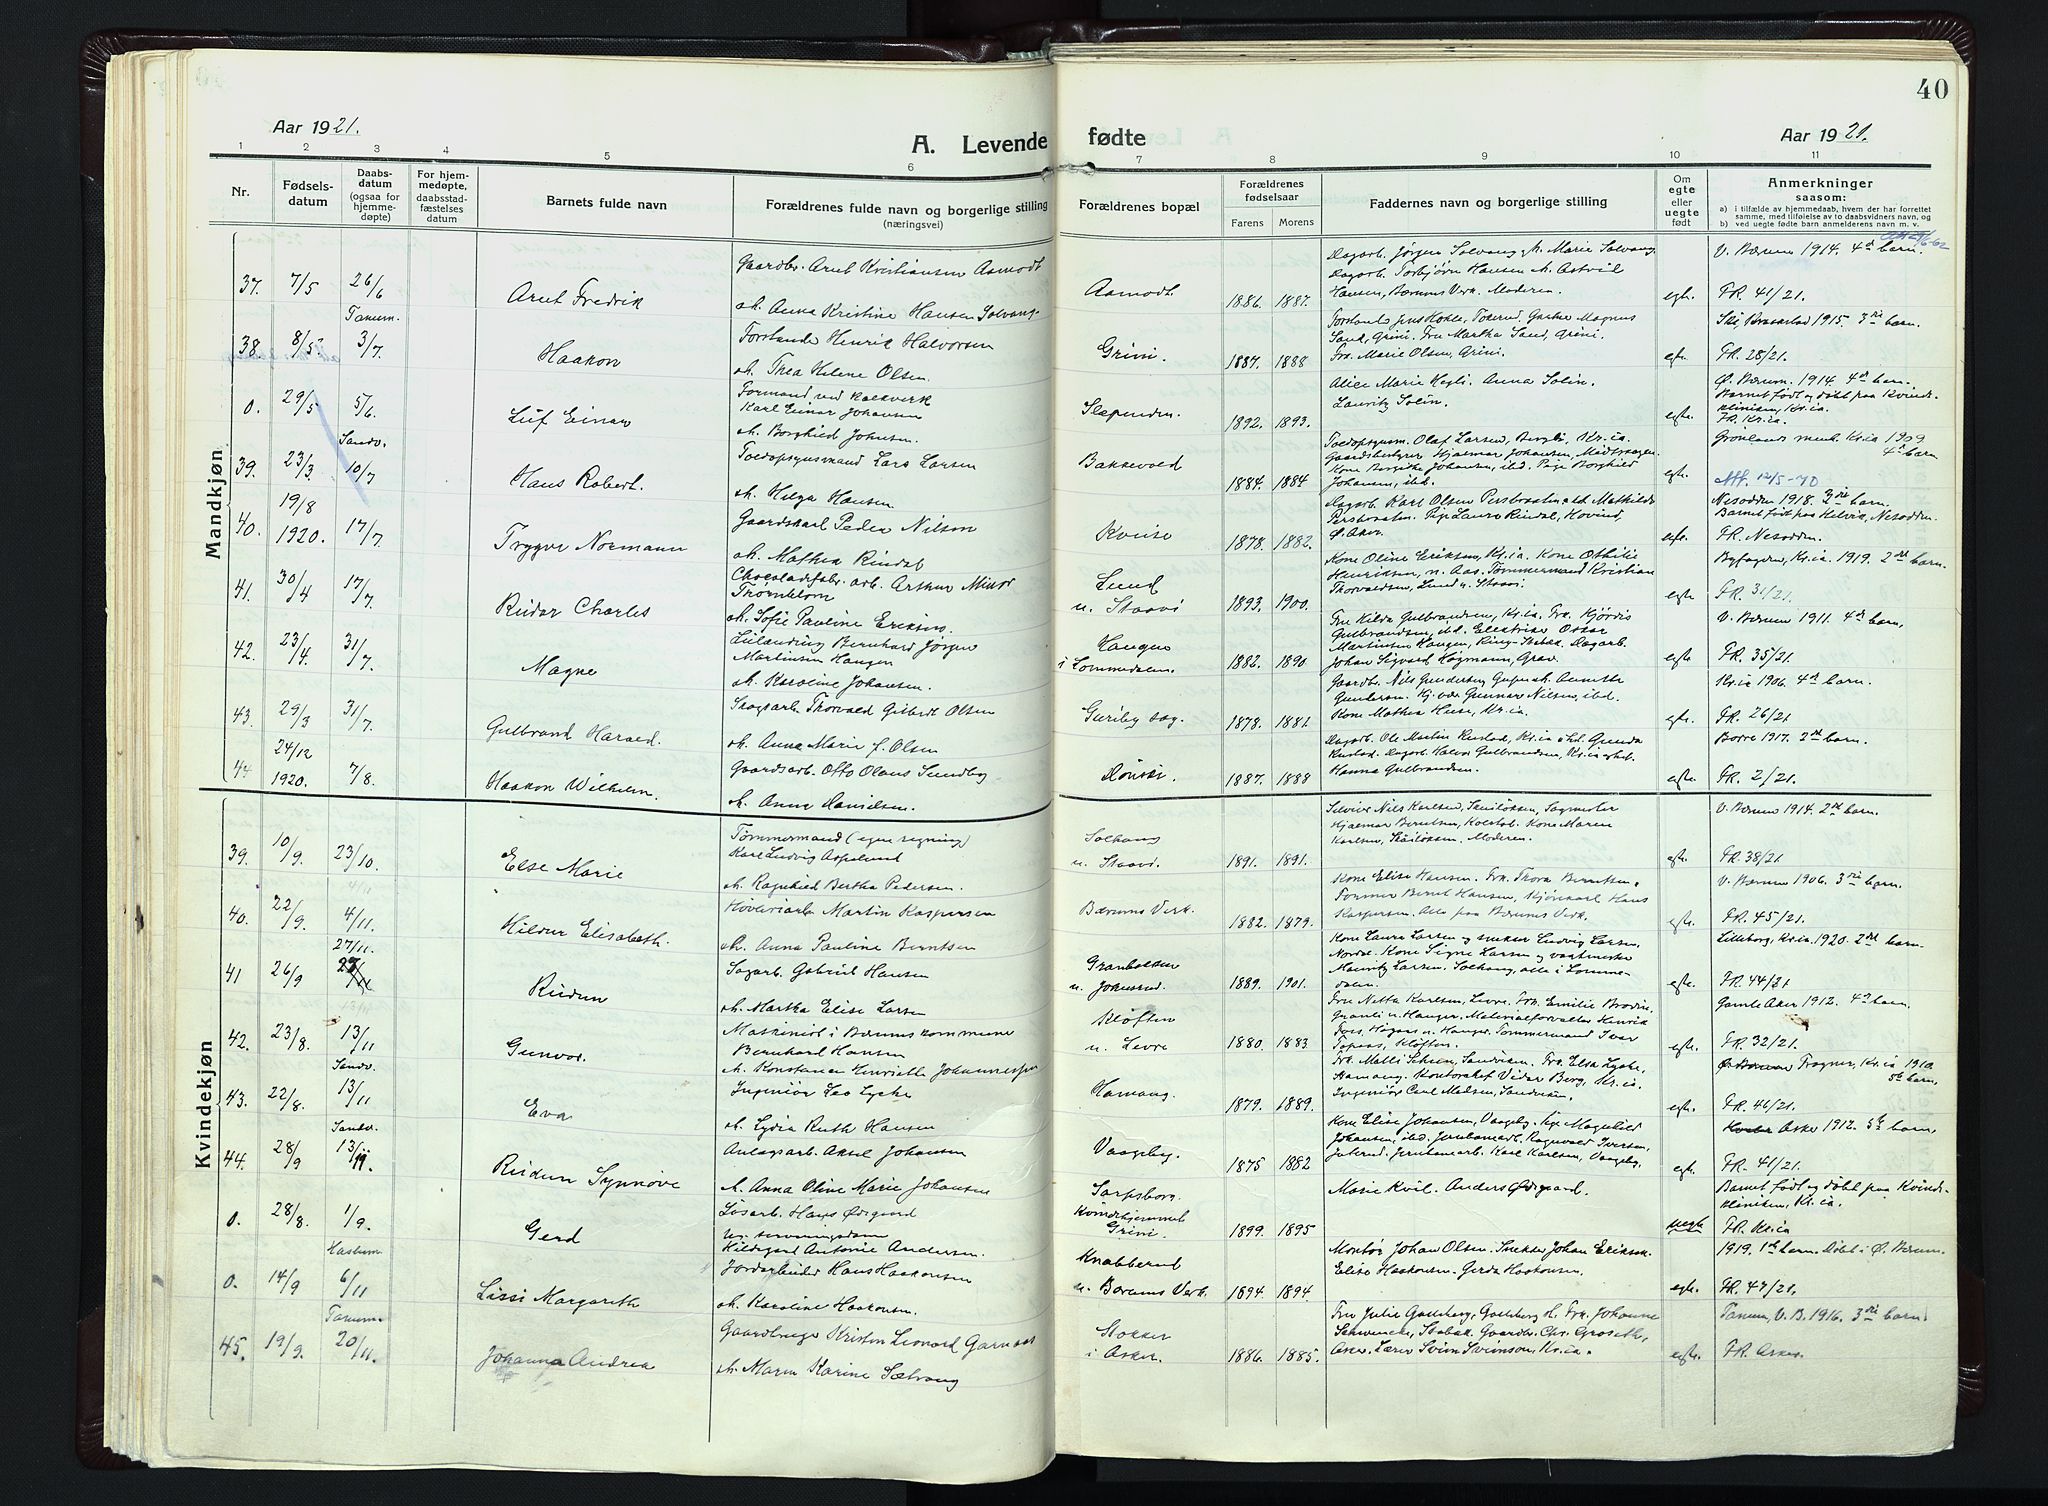 40
Aar 1921.
A. Levende
fødte
Aar 1921.
1 2 3 4 5 6 7 8 9 10 11
Nr.
Fødsels-
datum
Daabs-
datum
(ogsaa for
hjemme-
døpte)
For hjem-
medøpte,
daabsstad-
fæstelses
datum
Barnets fulde navn
Forældrenes fulde navn og borgerlige stilling
(næringsvei)
Forældrenes bopæl
Forældrenes
fødselsaar
Farens
Morens
Faddernes navn og borgerlige stilling
Om
egte
eller
uegte
født
Anmerkninger
saasom:
a) i tilfælde av hjemmedaab, hvem der har forrettet
samme, med tilføielse av to daabsvidners navn, og
b) ved uegte fødte barn anmelderens navn m. v.
Mandkjøn
37. 7/5 26/6 Arnt Fredrik
Gaardbr. Arnt Kristiansen Aamodt
oh. Anna Kristine Hansen Solvang
Aamodt 1886. 1887.
Dagarb. Jørgen Solvang oh. Marie Solvang.
Dagarb. Torbjørn Hansen oh. Astrid
Hansen, Bærums Verk. Moderen.
egte. V. Bærum 1914. 4d barn.
FR. 41/21.
38. 8/5 Tanum. 3/7 Haakon
Forstander Henrik Halvorsen
oh. Thea Helene Olsen.
Grini. 1887. 1888
Sand, Grini. Fru Martha Sand, Grini.
Frk. Marie Olsen, Grini.
egte. Ski Kraakstad 1915. 3die barn.
FR. 28/21.
0. 29/5 5/6 Leif Einar
Formand ved kalkverk
Karl Einar Johansen
oh. Borghild Johnsen.
Slependen. 1892. 1893.
Alice Marie Hegli. Anna Solin.
Lauritz Solin.
egte. Ø. Bærum. 1914. 4de barn.
Barnet født og døbt paa Kvinde-
kliniken, Kr.ia.
FR. Kr.ia.
39. 23/3. Sandv. 10/7 Hans Robert.
Toldopsynsmand Lars Larsen
oh. Helga Hansen.
Bakkevold 1884. 1884
Toldopsynsm. Olaf Larsen, Bergli, Kr.ia.
Kone Birgitte Johansen, ibd. Pige Borghild
Johansen, ibd.
egte. Grønlands menh. Kr.ia 1909
4de barn
Att. 12/5-40
40. 19/8 1920. 17/7. Trygve Normann
Gaardskarl Peder Nilsen
oh. Mathea Rindal
1878. 1882.
Dagarb. Karl Olsen Persbraaten oh. Mathilde
Persbraaten. Pige Laura Rindal, Hovind,
Ø. Aker.
egte. Nesodden 1918. 3die barn.
Barnet født paa Helvik, Nesodden.
FR. Nesodden.
41. 30/4 17/7. Reidar Charles
Chocoladefabr. arb. Arthur Minor
Tørnblom
oh. Sofie Pauline Eriksen.
Lund
u. Staavi 1893. 1900.
Kone Oline Eriksen, Kr.ia. Kone Othilie
Henriksen, n. Aas. Tømmermand Kristian
Thorvaldsen, Lund u. Staavi
egte. Byfogden, Kr.ia 1919. 2det barn.
FR. 31/21.
42. 23/4. 31/7. Magne
Leilending Bernhard Jørgen
Martinsen Haugen
oh. Karoline Johansen.
Haugen
i Lommedalen. 1882. 1890
Fru Hilda Gulbrandsen, Kr.ia. Frk. Hjørdis
Gulbrandsen, ibd. Elektriker Oskar
Johan Sigvard Hagmann, Grav.
egte V. Bærum 1911. 4de barn.
FR. 35/21.
43. 29/3 31/7. Gulbrand Harald.
Skogsarb. Thorvald Gilbert Olsen
oh. Anna Marie f. Olsen
Guriby sag. 1878. 1881.
Kone Mathea Huse, Kr.ia.
egte. Kr.ia 1906. 4de barn.
FR. 26/21.
44 24/12 1920. 7/8. Haakon Wilhelm.
Gaardsarb. Otto Olaus Sundby
oh. Anna Danielsen.
Dønski. 1887. 1888
Hanna Gulbrandsen.
egte. Borre 1917. 2det barn.
FR. 2/21.
Kvindekjøn
39. 10/9. 23/10. Else Marie
Tømmermand (egen regning)
Karl Ludvig Aspelund
oh. Ragnhild Bertha Pedersen.
Solhaug
u. Staavi. 1891. 1891.
Hjalmar Berntsen, Kolstad. Kone Maren
Karlsen, Skuiløkken. Moderen.
egte. V. Bærum 1914. 2det barn.
FR. 38/21.
40. 22/9. 4/11. Hildur Elisabeth.
Høvleriarb. Martin Kaspersen
oh. Anna Pauline Berntsen
Bærums Verk. 1882. 1879.
Kone Elise Hansen. Frk. Thora Berntsen.
Former Bernt Hansen, Kjørekarl Hans
Kaspersen. Alle paa Bærums Verk.
egte. V. Bærum 1906. 3die barn.
FR. 45/21.
41 26/9 27/11. Reidun
Sagarb. Gabriel Hansen
oh. Martha Elise Larsen
Granholten
u. Johnsrud. 1889. 1901.
Kone Laura Larsen og snekker Ludvig Larsen,
Nordal. Kone Signe Larsen og vaatmester
Mauritz Larsen. Solhaug, alle i Lomme-
dalen.
egte. Lilleborg, Kr.ia. 1920. 2det barn.
FR. 44/21
42. 23/8. 13/11 Gunvor.
Maskinist i Bærums kommune
Bernhard Hansen
oh. Konstance Henriette Johannessen
Kløften
u. Levre 1880. 1883
Fru Netta Karlsen, Levre. Frk. Emilie Brodin,
Granli u. Hauger, Materialforvalter Henrik
Foss, Høgaas u. Hauger. Tømmermand Ivar
Topaas, Kløften.
egte. Gamle Aker 1912. 4de barn.
FR. 32/21.
43. 22/8. Sandv. 13/11 Eva
Ingeniør Leo Lycke
oh. Lydia Ruth Hansen
Hamang. 1879. 1889.
Hamang. Kontorchef Vidar Berg, Kr.ia.
Ingeniør Carl Madsen, Sandviken.
egte. Frogner, Kr.ia 1910.
5te barn.
FR. 46/21.
44. 28/9 Sandv. 13/11. Reidun Synnøve
Anlægsarb. Aksel Johansen
oh. Anna Oline Marie Johansen
Vaageby. 1875 1882
Kone Elise Johansen, Vaageby. Pige Magnhild
Johansen, ibd. Jernbanearb. Ragnvald Iversen,
Jernbanearb. Karl Karlsen, Vaageby.
egte. Asker 1912. 3die barn.
FR. 41/21.
0. 28/8. 1/9. Gerd
Løsarb. Hans Ødegaard
Hildegard Antonie Andersen.
Sarpsborg.
Kvindehjemmet
Grini. 1899. 1895
Marie Kvil. Anders Ødegaard.
uegte Barnet født og døbt paa Kvinde-
kliniken, Kr.ia.
FR. Kr.ia
0. 14/9 Haslum. 6/11 Lissi Margareth
Jordarbeider Hans Haakonsen
oh. Karoline Haakonsen.
Knabberud
u. Bærums Verk. 1894. 1894.
Montør Johan Olsen. Snekker Johan Eriksen.
Elise Haakonsen. Gerda Haakonsen.
egte. 1919. 1ste barn. Døbt i Ø. Bærum.
FR. 47/21.
45. 19/9. Tanum. 20/11. Johanna Andrea
Gaardbruger Kristen Leonard Garnaas
oh. Maren Karine Sætrang
Stokker
i Asker. 1886. 1885.
Fru Julie Galleberg, Galleberg oh. Frk. Johanne
Schwencke, Stabæk. Gaardbr. Chr. Groseth,
Asker. Lærer Svein Sveinsen, Kr.ia.
egte. Tanum, V. B. 1916. 3die barn.
FR. Asker.